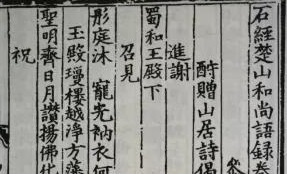 石經楚山和尚語録卷
酧贈山居詩偈
蜀和王殿下
進謝
召見
彤庭沐 寵先衲衣何
玉殿瓊樓越淨方
聖明齊日月讃揚佛化
祝